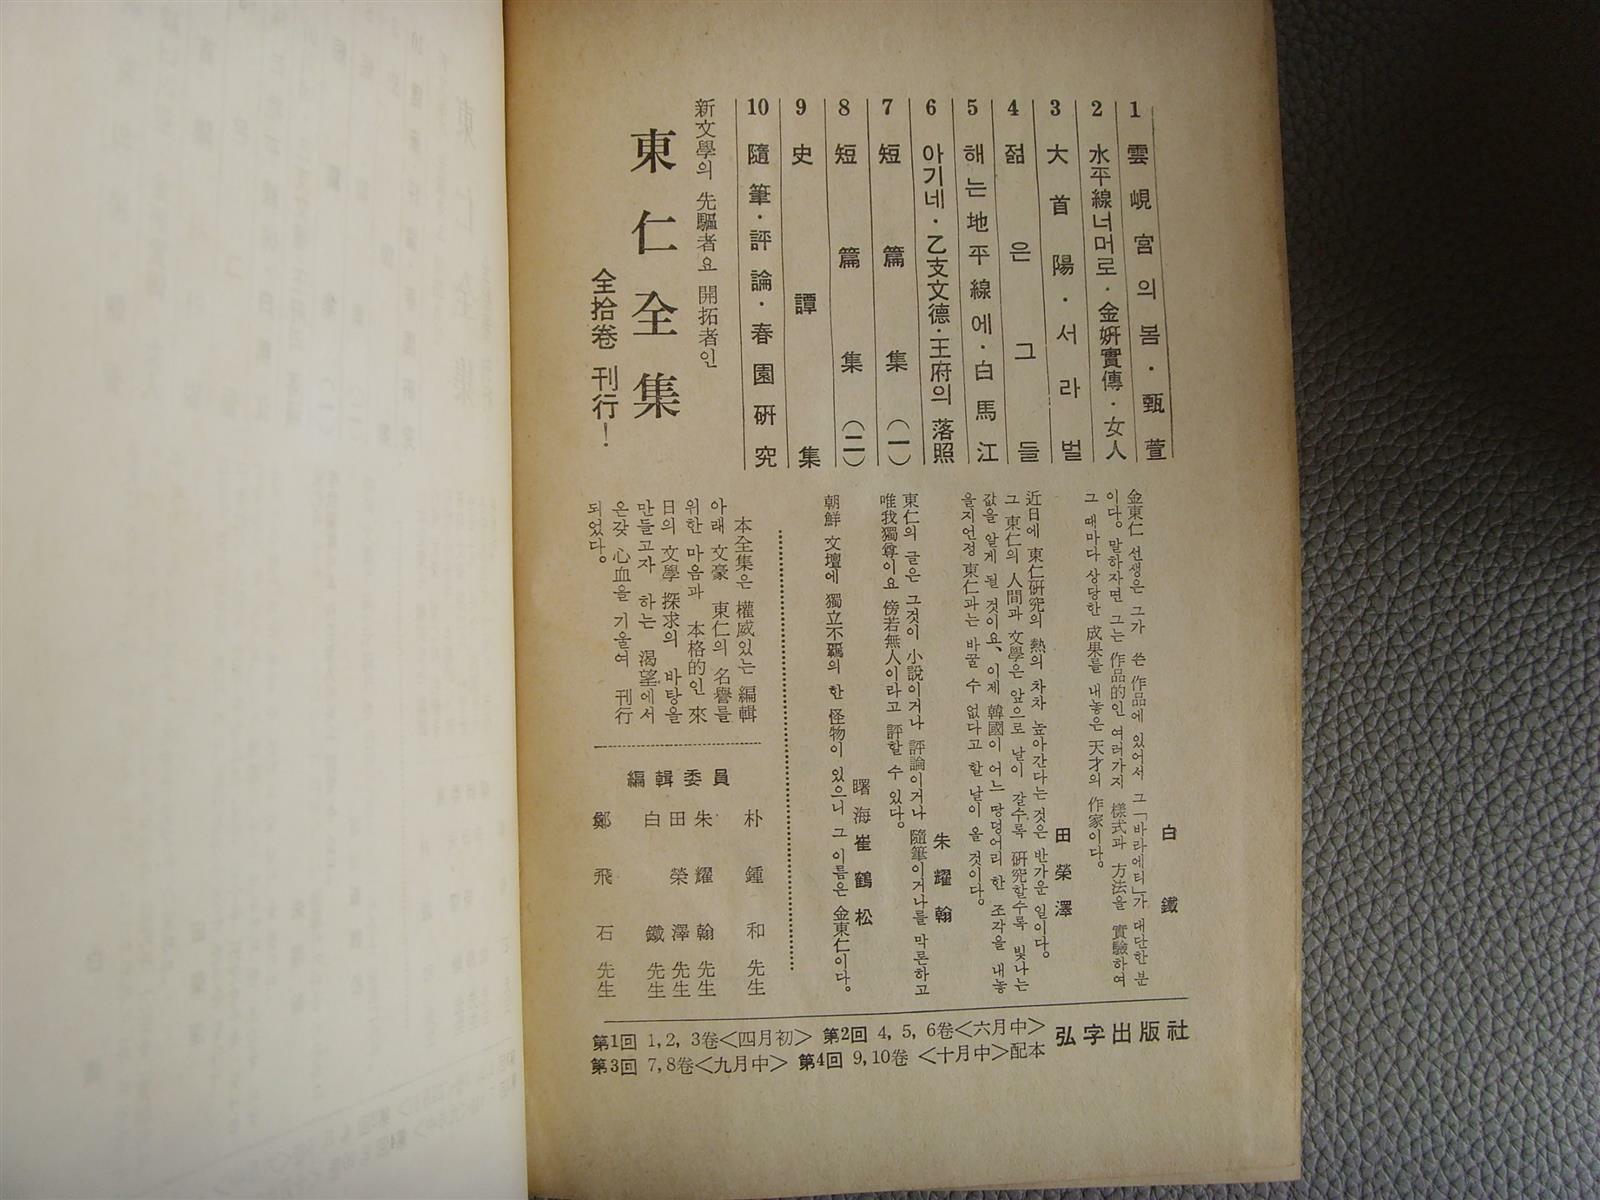 1 雲峴宮의 봄·甄萱
2 水平線너머로·金姸實傳·女人
3 大首陽·서라벌
4 젊은그들
5 해는地平線에·白馬江
6 아기네·乙支文德·王府의 落照
7 短篇集(一)
8 短篇集(二)
9 史譚集
10 隨筆·評論·春園硏究
新文學의 先驅者요 開拓者인
東仁全集
全拾卷 刊行!
白鐵
金東仁 선생은 그가 쓴 作品에 있어서 그「바라에티」가 대단한 분
이다. 말하자면 그는 作品的인 여러가지 樣式과 方法을 實驗하여
그 때마다 상당한 成果를 내놓은 天才의 作家이다.
田榮澤
近日에 東仁硏究의 熱의 차차 높아간다는 것은 반가운 일이다.
그 東仁의 人間과 文學은 앞으로 날이 갈수록 硏究할수록 빛나는
값을 알게 될 것이요, 이제 韓國이 어느 땅덩어리 한 조각을 내놓
을지언정 東仁과는 바꿀 수 없다고 할 날이 올 것이다.
朱耀翰
東仁의 글은 그것이 小說이거나 評論이거나 隨筆이거나를 막론하고
唯我獨尊이요 傍若無人이라고 評할 수 있다.
曙海 崔鶴松
朝鮮 文壇에 獨立不羈의 한 怪物이 있으니 그 이름은 金東仁이다.
本全集은 權威있는 編輯
아래 文豪 東仁의 名譽를
위한 마음과 本格的인 來
日의 文學 探求의 바탕을
만들고자 하는 渴望에서
온갖 心血을 기울여 刊行
되었다.
編輯委員
朴鍾和 先生
朱耀翰 先生
田榮澤 先生
白鐵 先生
鄭飛石 先生
第1回 1, 2, 3卷<四月初> 第2回 4, 5, 6卷<六月中>
第3回 7, 8卷<九月中> 第4回 9, 10卷 <十月中>配本
弘字出版社